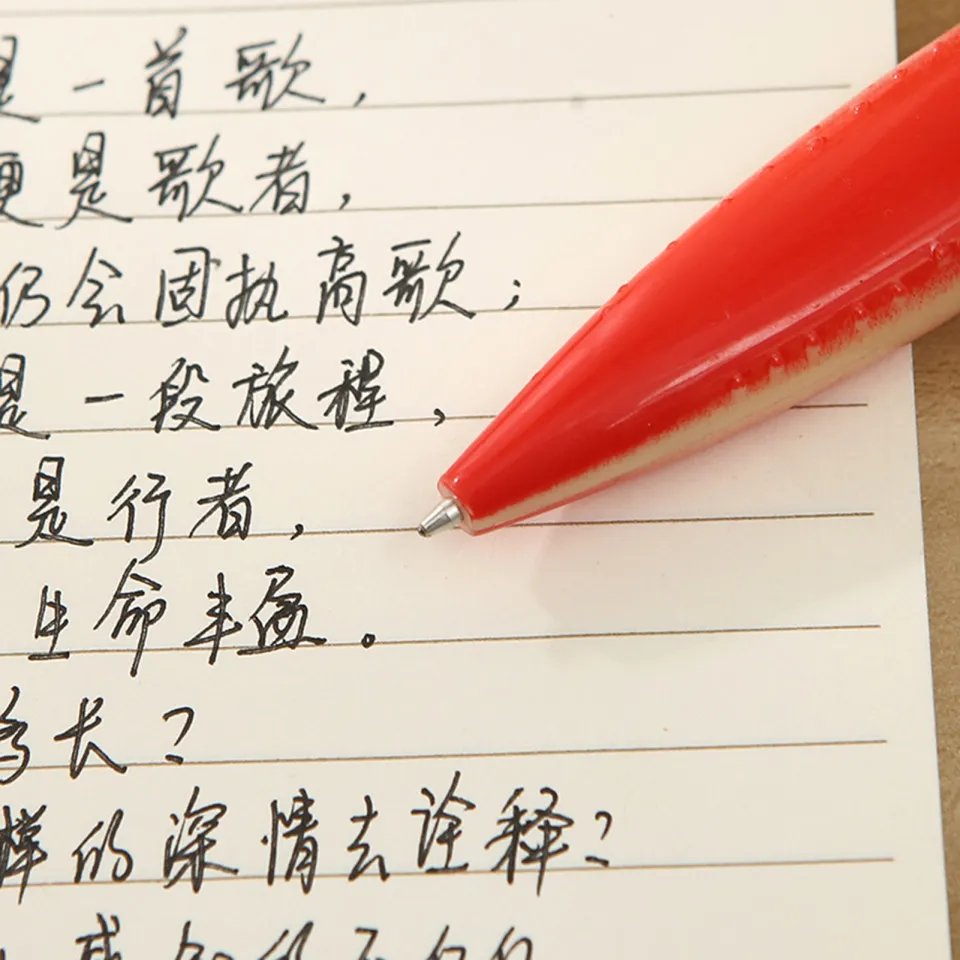 是一首歌，
更是歌者，
仍会固执高歌；
是一段旅程，
是行者，
生命丰盈。
长？
样的深情去诠释？